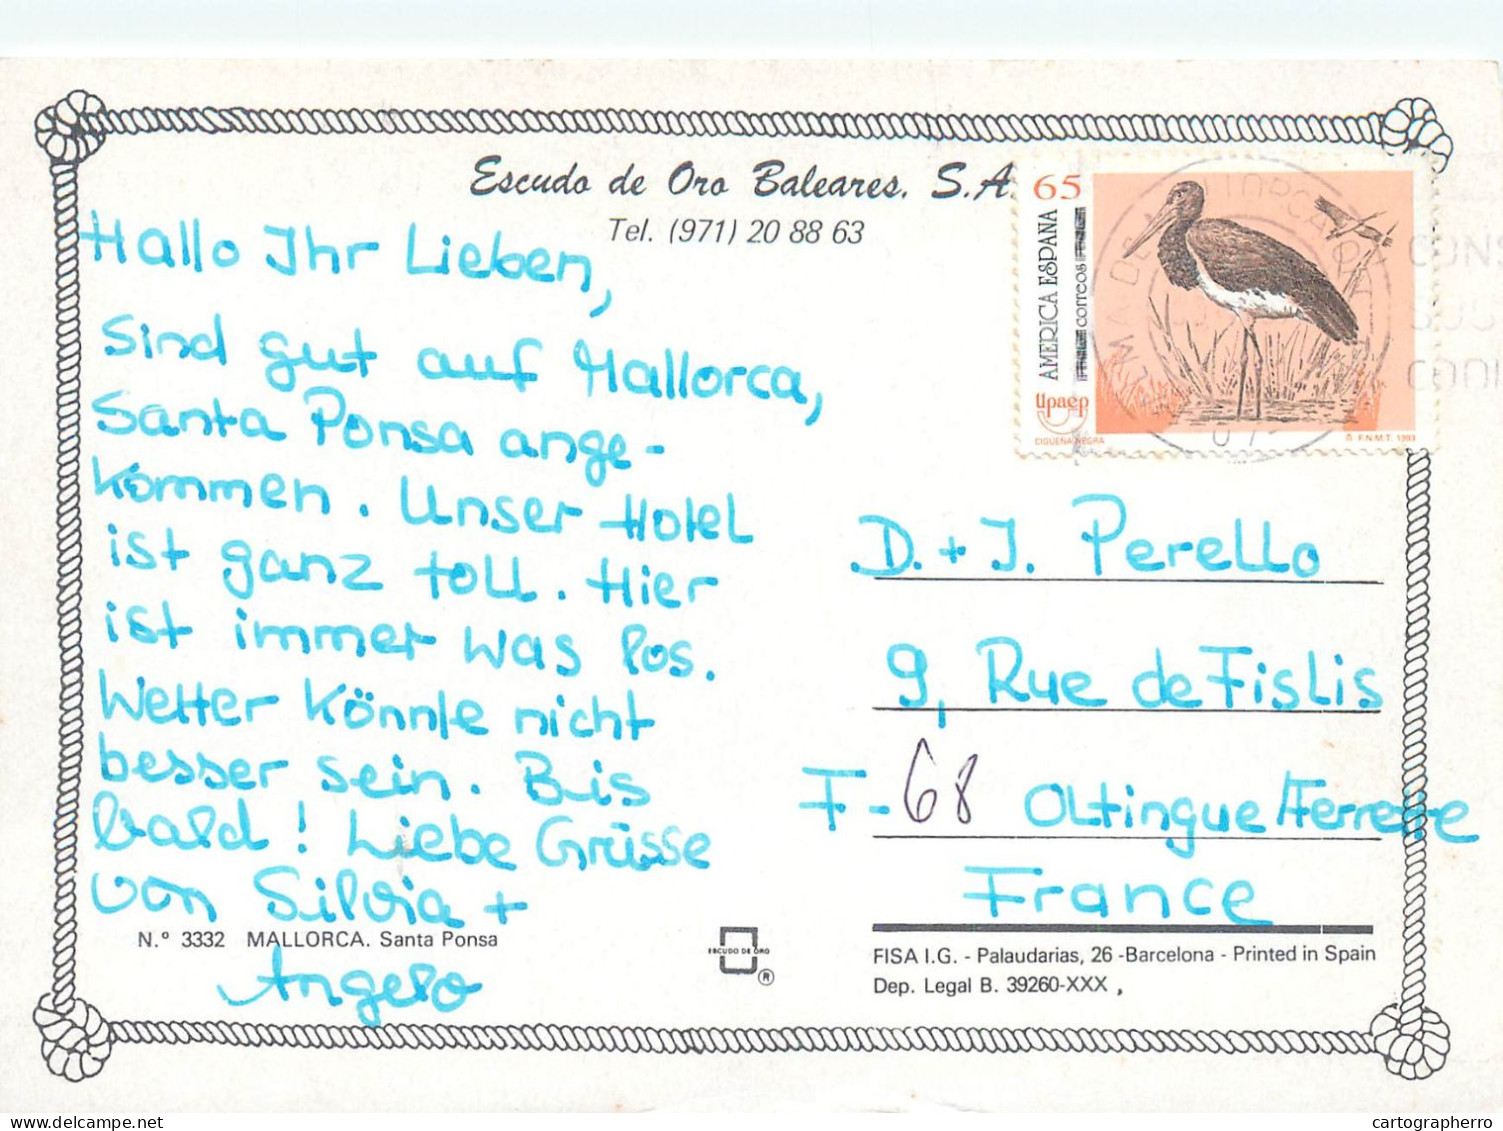 Escudo de Oro Baleares, S.A.
Tel. (971) 20 88 63
Hallo Ihr Lieben,
Sind gut auf Mallorca,
Santa Ponsa ange-
kommen. Unser Hotel
ist ganz toll. Hier
ist immer was los.
Wetter könnte nicht
besser sein. Bis
bald! Liebe Grüsse
von Silvia +
Angelo
N.º 3332 MALLORCA. Santa Ponsa
ESCUDO DE ORO
®
65
AMERICA ESPAÑA
correos
Upaep
CIGUEÑA NEGRA
© F.N.M.T. 1993
D. + J. Perello
9, Rue de Fislis
F-68 Oltingue/Ferrette
France
FISA I.G. - Palaudarias, 26 -Barcelona - Printed in Spain
Dep. Legal B. 39260-XXX
cartographerro